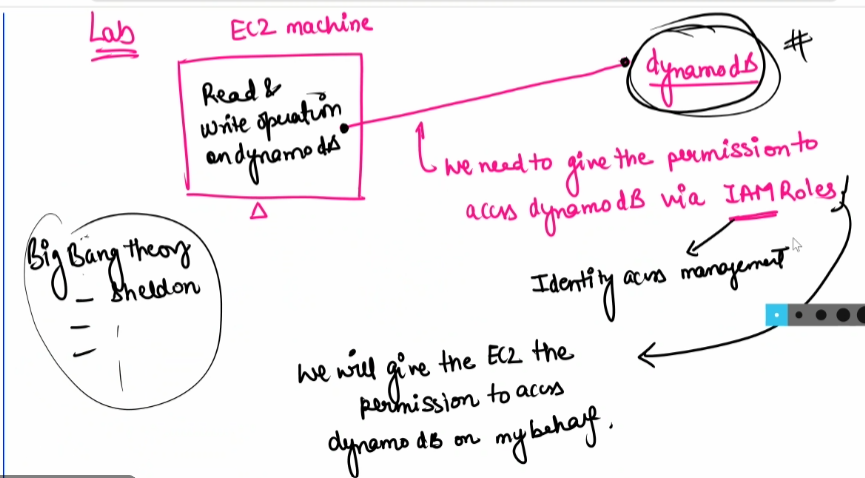 Lab
EC2 machine
Read &
write operation
on dynamo dB
dynamodB
#
We need to give the permission to
access dynamodB via IAM Roles
Identity access management
Big Bang theory
- Sheldon
-
-
We will give the EC2 the
permission to access
dynamo dB on my behalf.